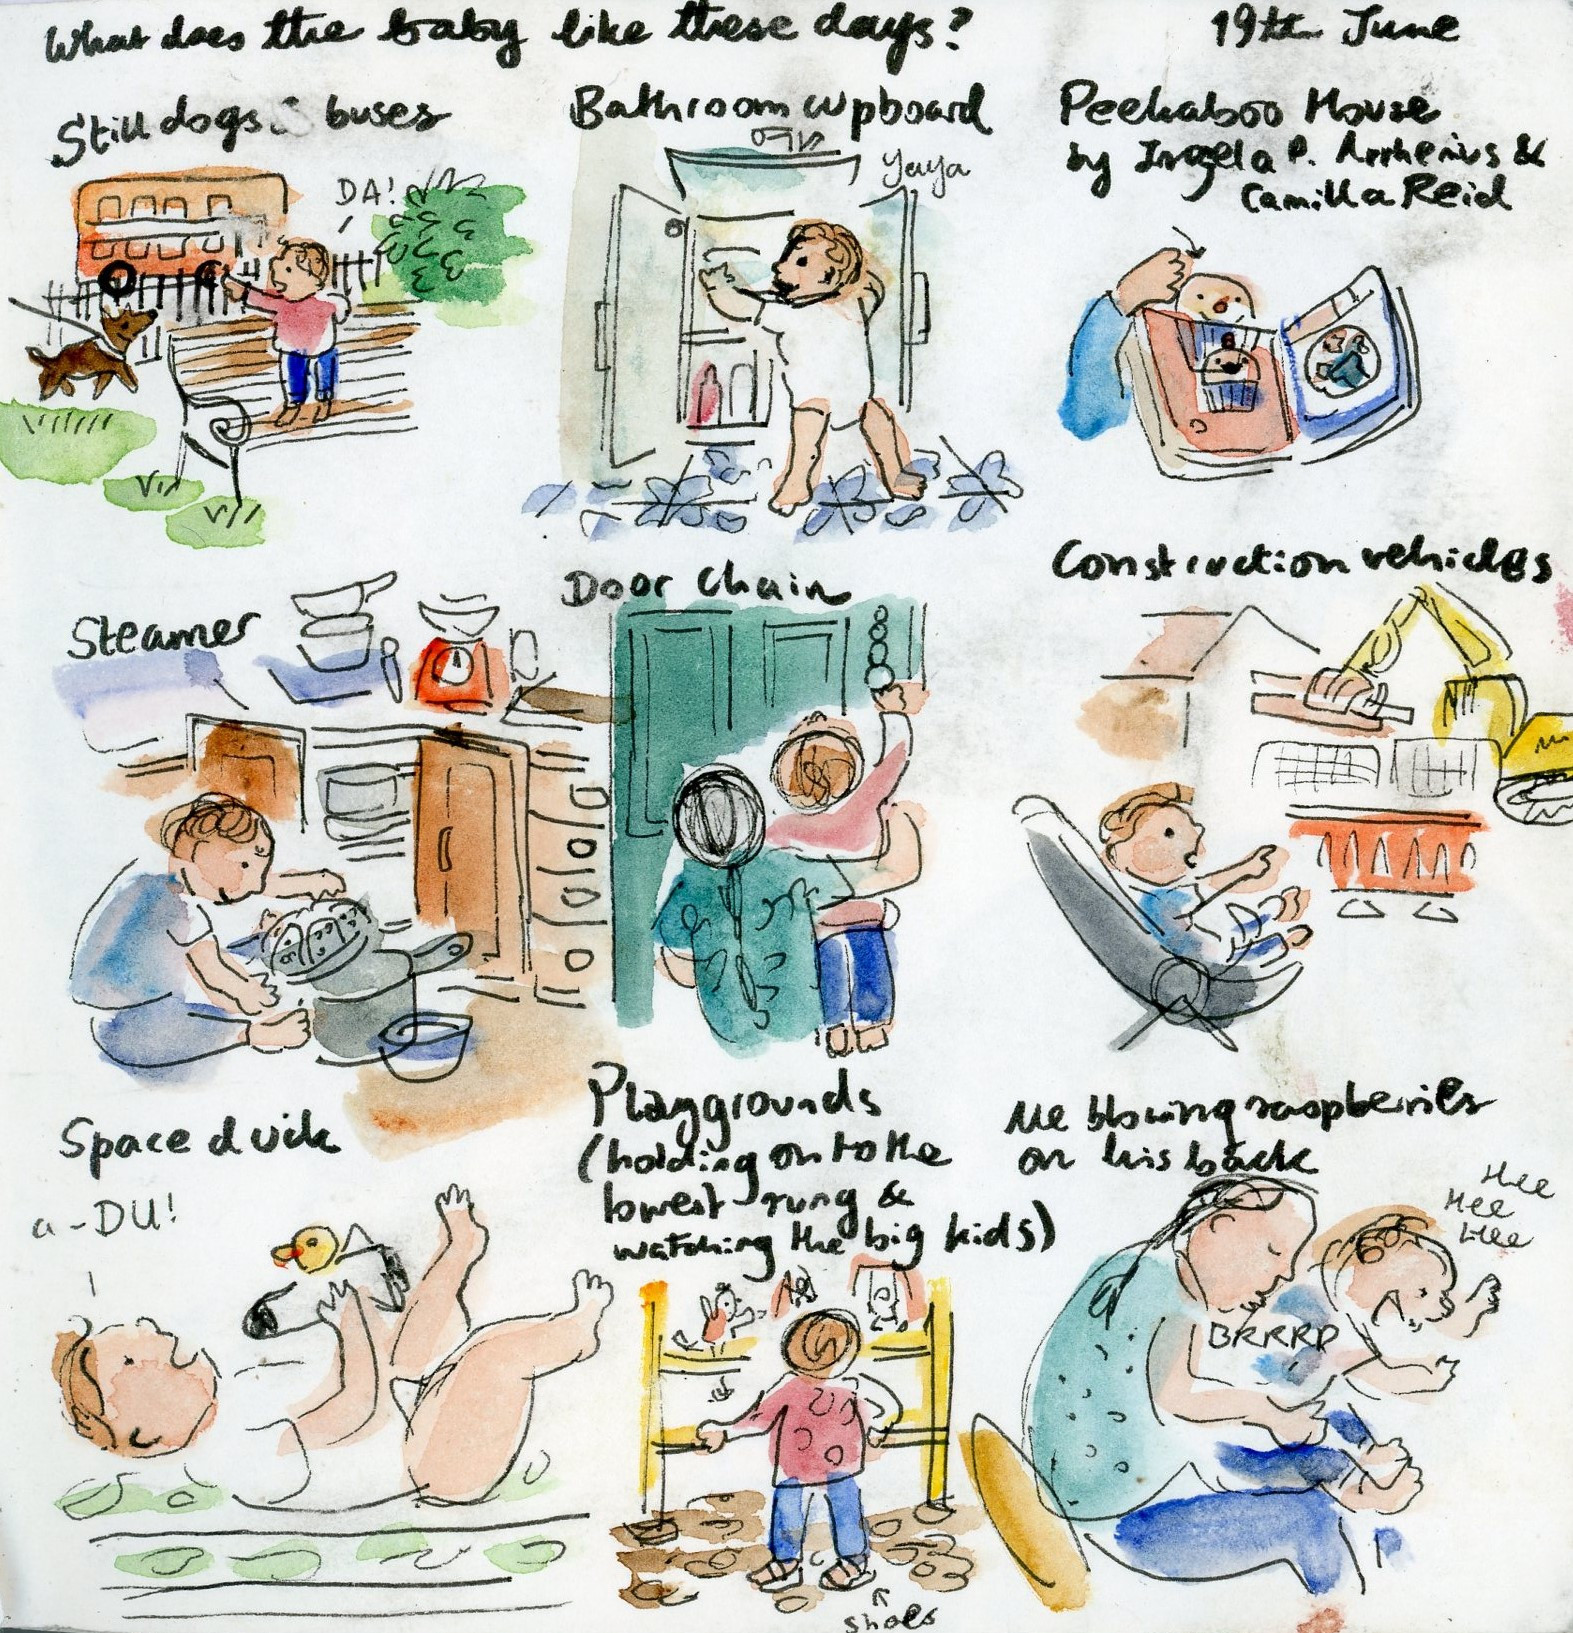 What does the baby like these days?
19th June
Still dogs & buses
DA!
Bathroom cupboard
Yaya
Peekaboo House
by Ingela P. Arrhenius &
Camilla Reid
Steamer
Door chain
Construction vehicles
Space duck
a-DU!
Playgrounds
(holding onto the
lowest rung &
watching the big kids)
shoes
Me blowing raspberries
on his back
Hee
Hee
Hee
BRRRP